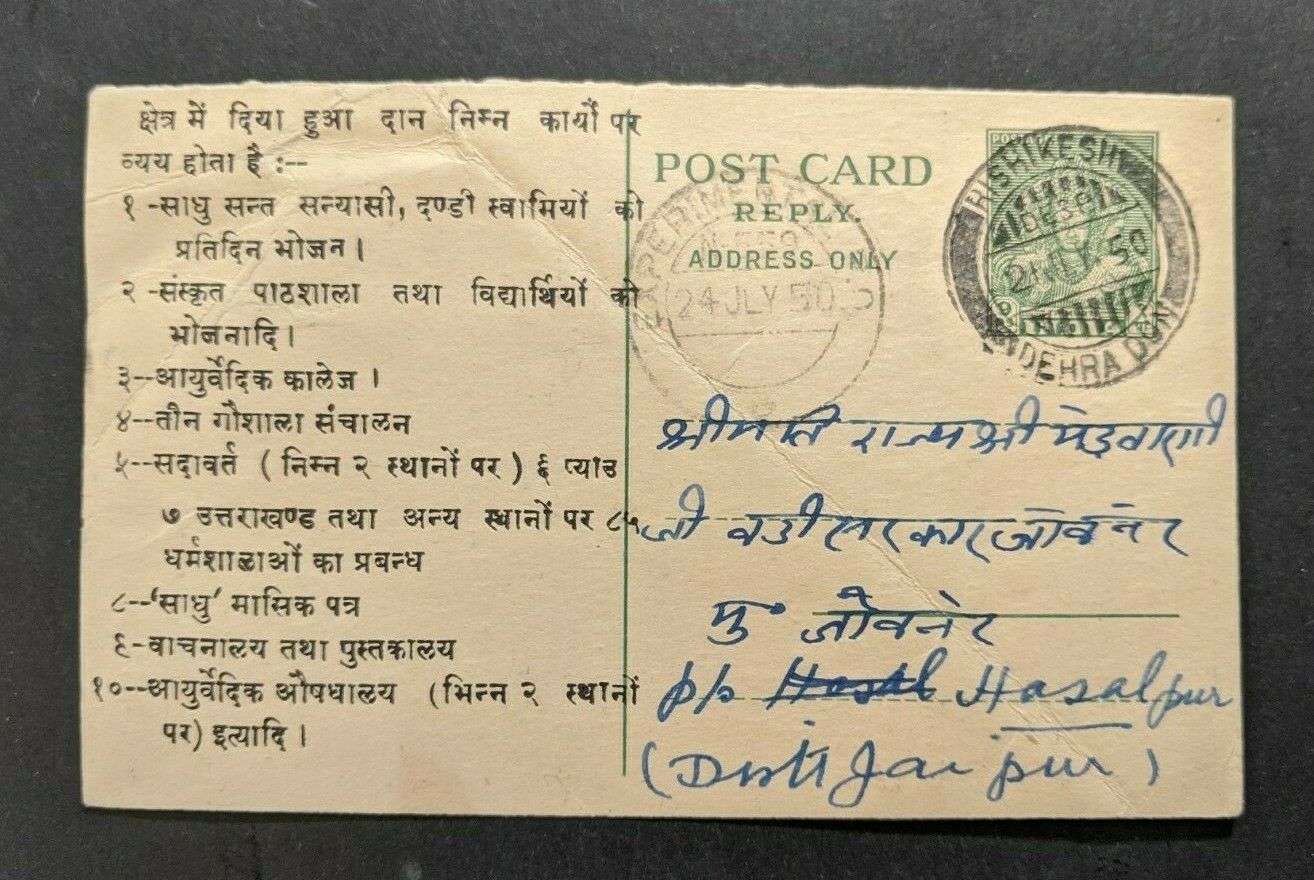 क्षेत्र में दिया हुआ दान निम्न कार्यों पर
व्यय होता है :--
१ -साधु सन्त सन्यासी, दण्डी स्वामियों को
प्रतिदिन भोजन ।
२ -संस्कृत पाठशाला तथा विद्यार्थियों को
भोजनादि ।
३--आयुर्वेदिक कालेज ।
४--तीन गौशाला संचालन
५--सदावर्त ( निम्न २ स्थानों पर ) ६ प्याउ
७ उत्तराखण्ड तथा अन्य स्थानों पर ८५
धर्मशालाओं का प्रबन्ध
८--'साधु' मासिक पत्र
९-वाचनालय तथा पुस्तकालय
१०--आयुर्वेदिक औषधालय (भिन्न २ स्थानों
पर) इत्यादि ।
POST CARD
REPLY.
ADDRESS ONLY
EXPERIMENTAL
24 JLY 50
RISHIKESH
JLY 50
DEHRA DUN
श्रीमति राज्य श्री
जी बडी सरकार जोबनेर
मु॰ जोबनेर
p/o Hasalpur
(Distt Jaipur)